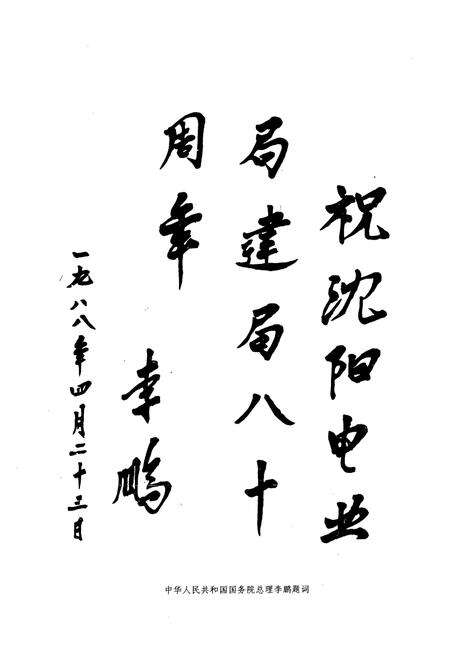 祝沈阳电业
局建局八十
周年
李鹏
一九八八年四月二十三日
中华人民共和国国务院总理李鹏题词